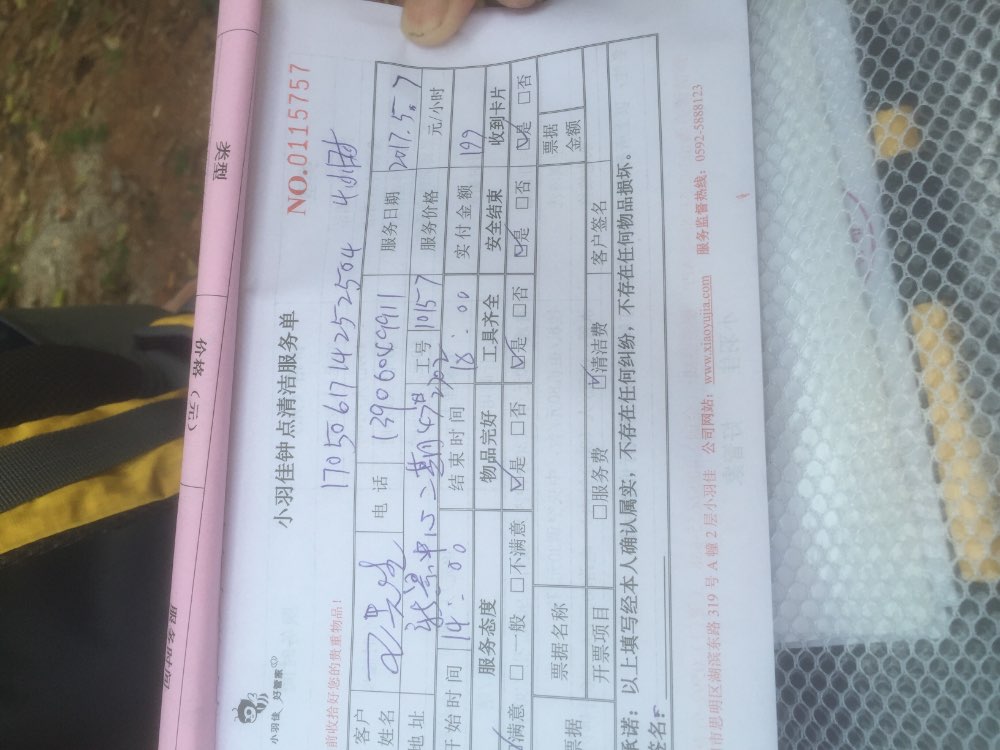 类型
价格（元）
服务时间
小羽佳 好管家
小羽佳钟点清洁服务单
NO.0115757
前收拾好您的贵重物品!
1705061714252504 4小时
客户姓名 电话 13906049911 服务日期 2017.5.7
地址 新景中心二期 工号 10157 服务价格 元/小时
开始时间 14:00 结束时间 18:00 实付金额 199
服务态度 物品完好 工具齐全 安全结束 收到卡片
满意 □一般 □不满意 ☑是 □否 ☑是 □否 ☑是 □否 ☑是 □否
票据 票据名称 □服务费 ☑清洁费 票据金额
开票项目 客户签名
承诺：以上填写经本人确认属实，不存在任何纠纷，不存在任何物品损坏。
签名：
市思明区湖滨东路 319 号 A 幢 2 层小羽佳 公司网站：www.xiaoyujia.com 服务监督热线：0592-5888123